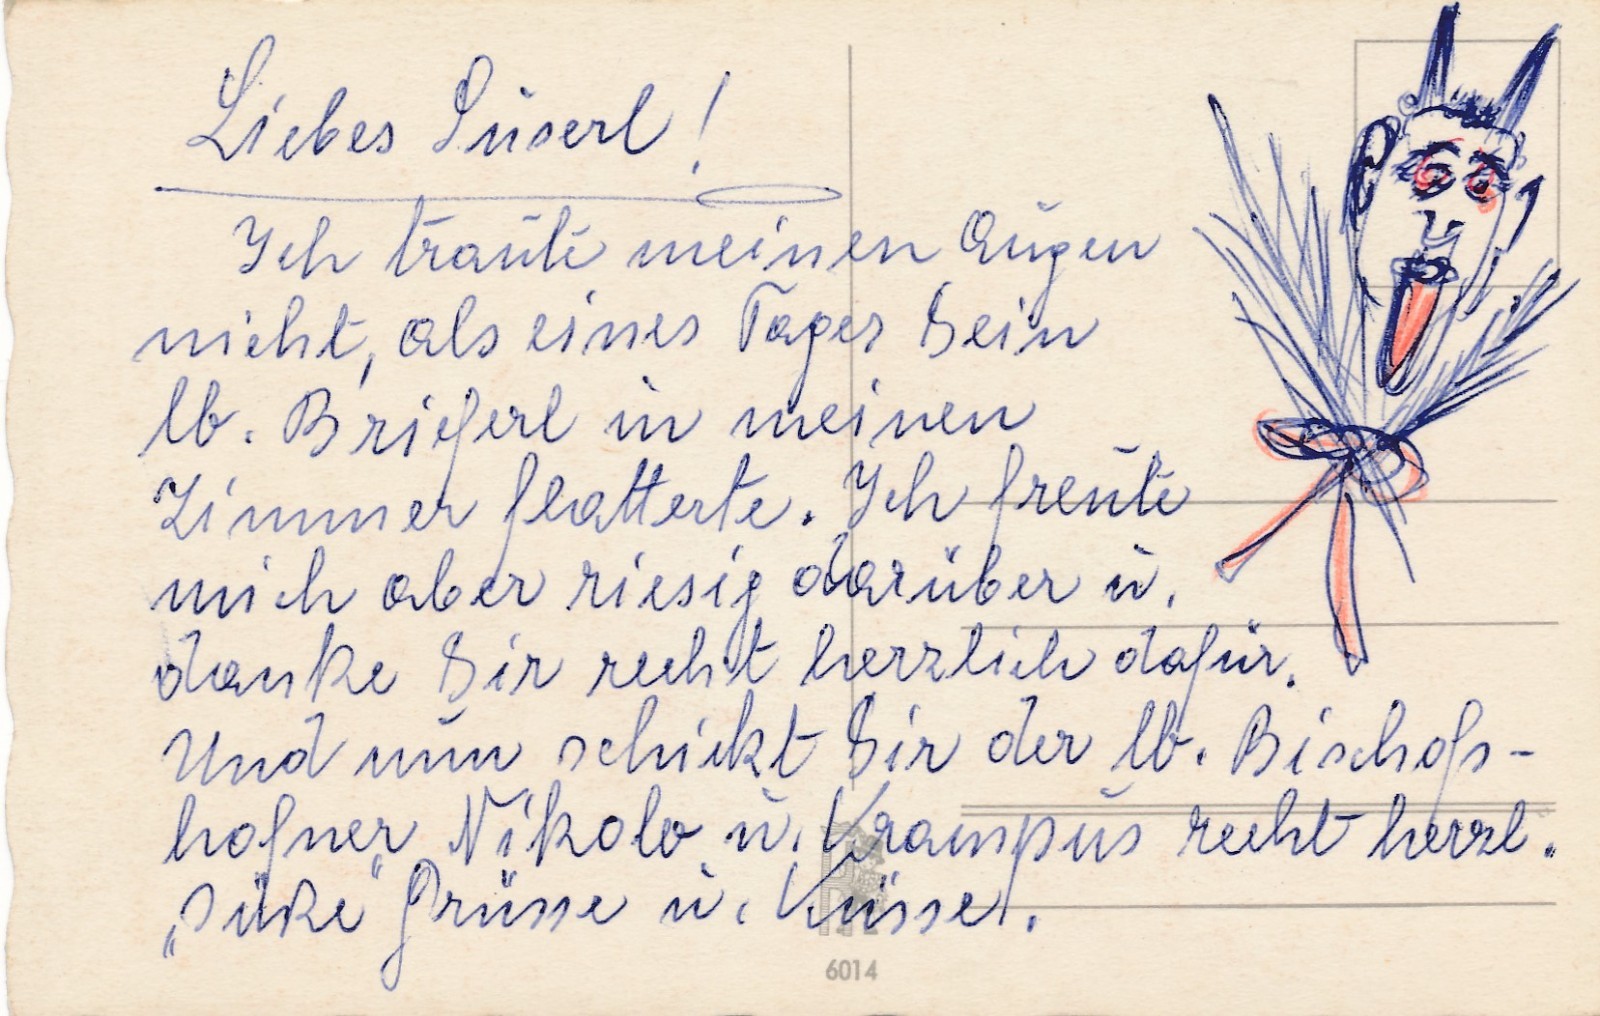 Liebes Suserl!
Ich traute meinen Augen
nicht, als eines Tages Dein
lb. Brieferl in meinen
Zimmer flatterte. Ich freute
mich aber riesig darüber u.
danke Dir recht herzlich dafür.
Und nun schickt Dir der lb. Bischofs-
hofner Nikolo u. Krampus recht herzl.
„süße" Grüsse u. Küsse.
6014